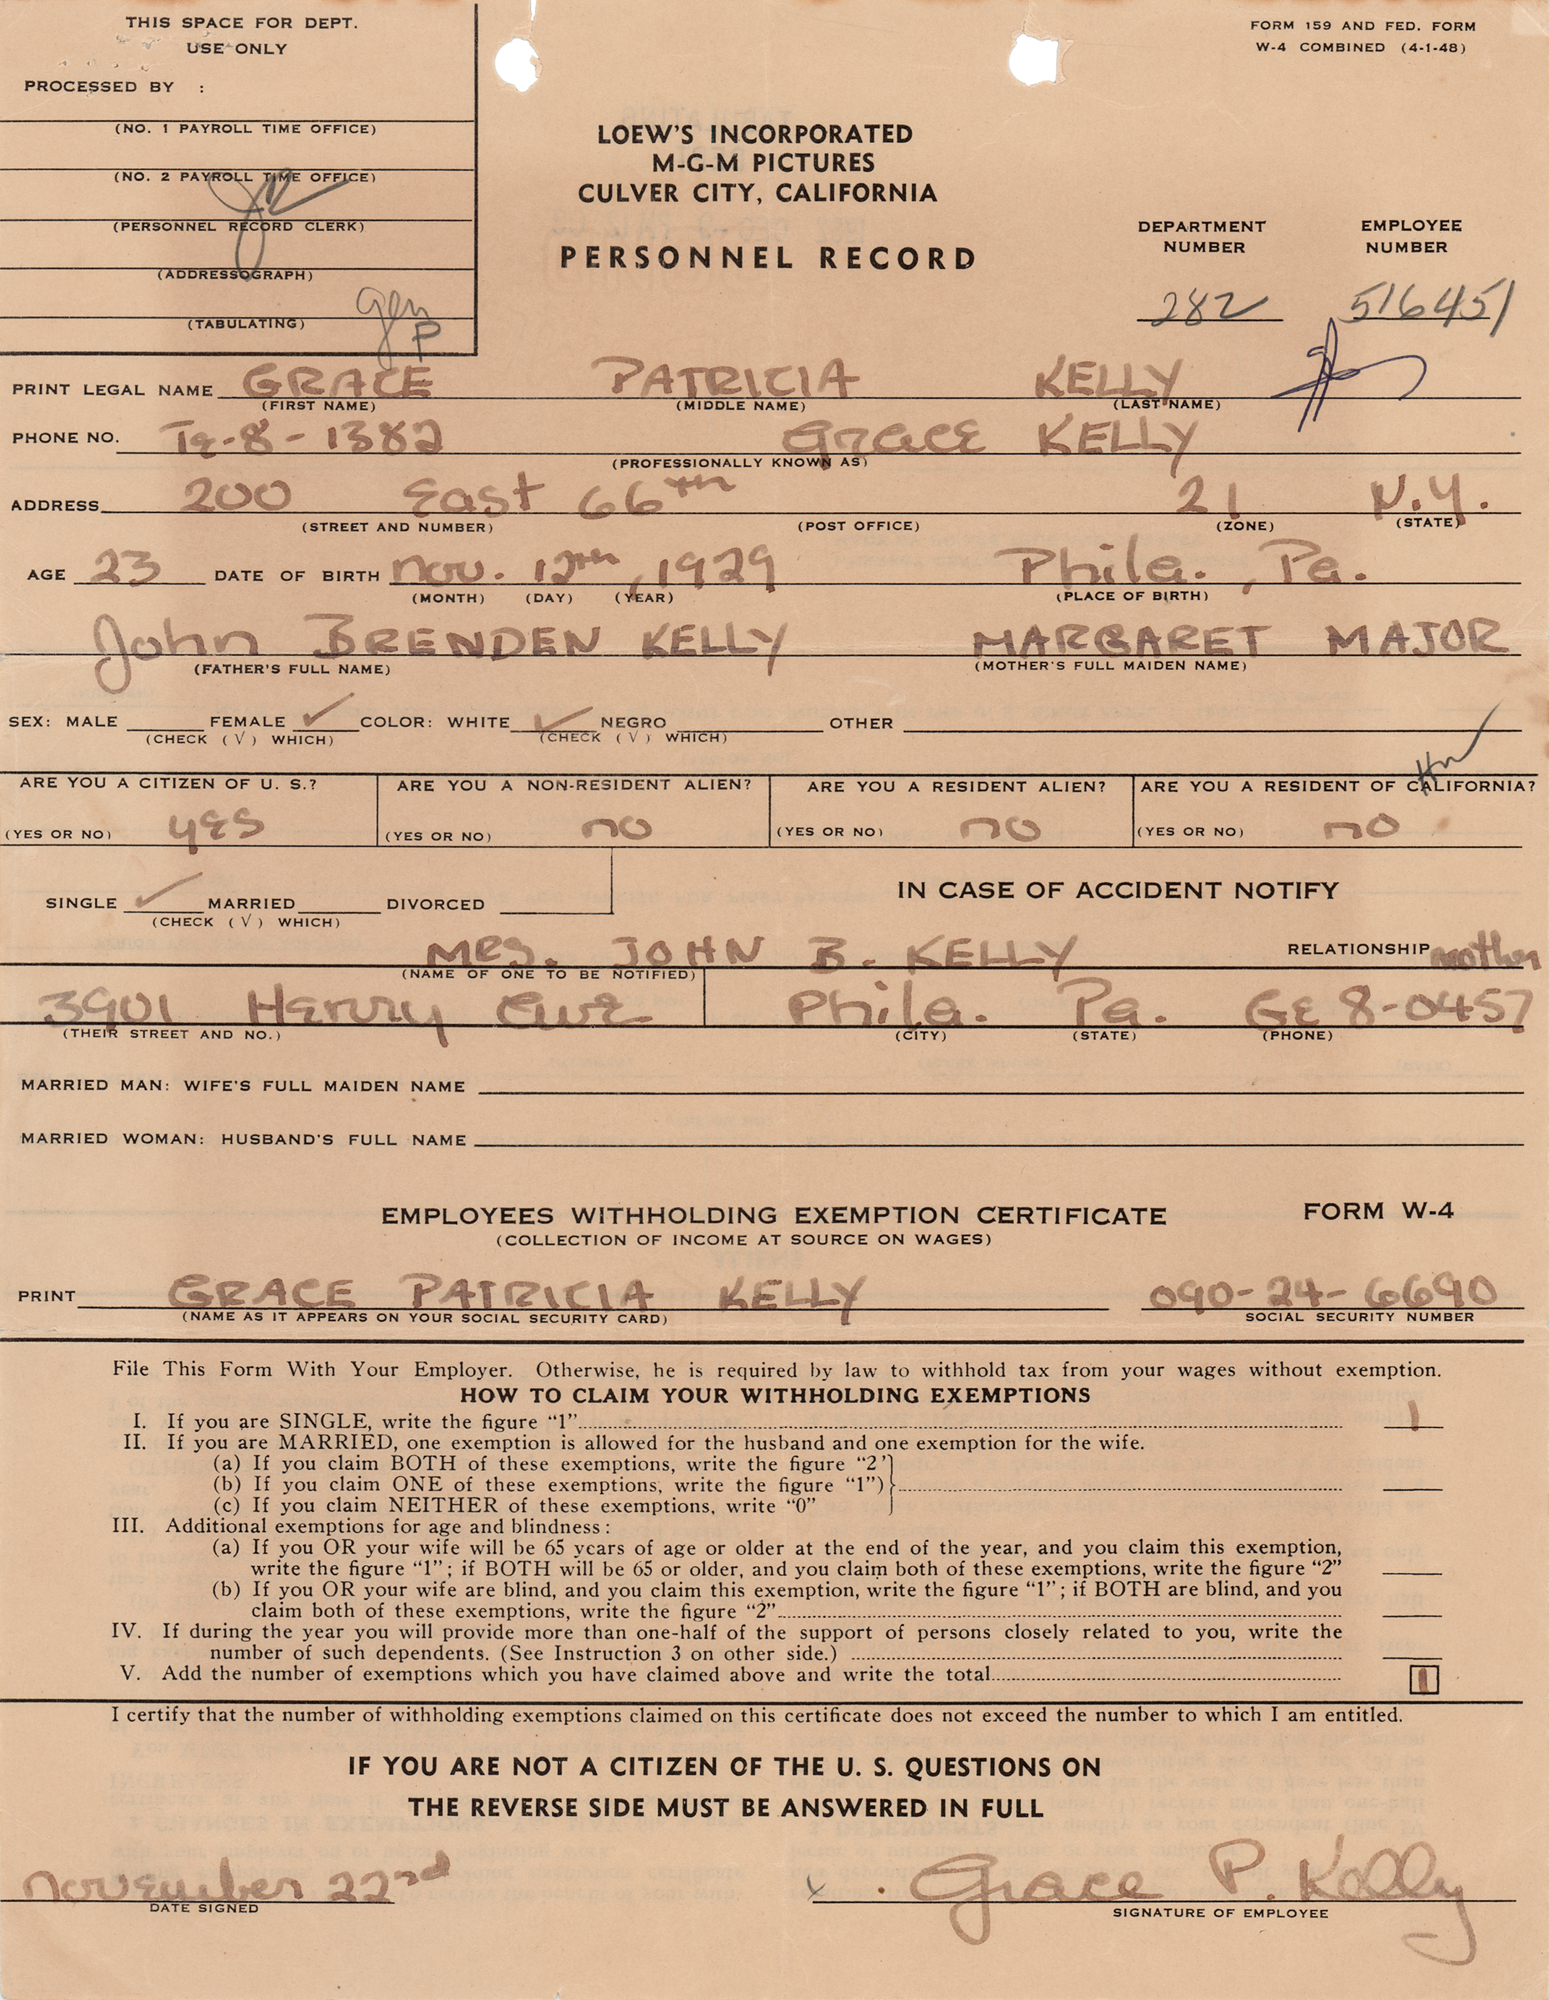 THIS SPACE FOR DEPT.
USE ONLY
FORM 159 AND FED. FORM
W-4 COMBINED (4-1-48)
PROCESSED BY :
(NO. 1 PAYROLL TIME OFFICE)
(NO. 2 PAYROLL TIME OFFICE)
(PERSONNEL RECORD CLERK)
(ADDRESSOGRAPH)
(TABULATING)
P
LOEW'S INCORPORATED
M-G-M PICTURES
CULVER CITY, CALIFORNIA
PERSONNEL RECORD
DEPARTMENT NUMBER
282
EMPLOYEE NUMBER
516451
PRINT LEGAL NAME GRACE PATRICIA KELLY
(FIRST NAME) (MIDDLE NAME) (LAST NAME)
PHONE NO. Te-8-1382 Grace KELLY
(PROFESSIONALLY KNOWN AS)
ADDRESS 200 East 66th 21 N.Y.
(STREET AND NUMBER) (POST OFFICE) (ZONE) (STATE)
AGE 23 DATE OF BIRTH Nov. 12th, 1929 Phila., Pa.
(MONTH) (DAY) (YEAR) (PLACE OF BIRTH)
John BRENDEN KELLY MARGARET MAJOR
(FATHER'S FULL NAME) (MOTHER'S FULL MAIDEN NAME)
SEX: MALE FEMALE ✓ COLOR: WHITE ✓ NEGRO OTHER
(CHECK (√) WHICH) (CHECK (√) WHICH)
ARE YOU A CITIZEN OF U. S.? ARE YOU A NON-RESIDENT ALIEN? ARE YOU A RESIDENT ALIEN? ARE YOU A RESIDENT OF CALIFORNIA?
(YES OR NO) yes (YES OR NO) no (YES OR NO) no (YES OR NO) no
SINGLE ✓ MARRIED DIVORCED
(CHECK (√) WHICH)
IN CASE OF ACCIDENT NOTIFY
MRS. JOHN B. KELLY RELATIONSHIP mother
(NAME OF ONE TO BE NOTIFIED)
3901 Henry Ave. Phila. Pa. Ge 8-0457
(THEIR STREET AND NO.) (CITY) (STATE) (PHONE)
MARRIED MAN: WIFE'S FULL MAIDEN NAME
MARRIED WOMAN: HUSBAND'S FULL NAME
EMPLOYEES WITHHOLDING EXEMPTION CERTIFICATE FORM W-4
(COLLECTION OF INCOME AT SOURCE ON WAGES)
PRINT GRACE PATRICIA KELLY 090-24-6690
(NAME AS IT APPEARS ON YOUR SOCIAL SECURITY CARD) SOCIAL SECURITY NUMBER
File This Form With Your Employer. Otherwise, he is required by law to withhold tax from your wages without exemption.
HOW TO CLAIM YOUR WITHHOLDING EXEMPTIONS
I. If you are SINGLE, write the figure "1" 1
II. If you are MARRIED, one exemption is allowed for the husband and one exemption for the wife.
(a) If you claim BOTH of these exemptions, write the figure "2"
(b) If you claim ONE of these exemptions, write the figure "1")
(c) If you claim NEITHER of these exemptions, write "0"
III. Additional exemptions for age and blindness:
(a) If you OR your wife will be 65 years of age or older at the end of the year, and you claim this exemption,
write the figure "1"; if BOTH will be 65 or older, and you claim both of these exemptions, write the figure "2"
(b) If you OR your wife are blind, and you claim this exemption, write the figure "1"; if BOTH are blind, and you
claim both of these exemptions, write the figure "2"
IV. If during the year you will provide more than one-half of the support of persons closely related to you, write the
number of such dependents. (See Instruction 3 on other side.)
V. Add the number of exemptions which you have claimed above and write the total 1
I certify that the number of withholding exemptions claimed on this certificate does not exceed the number to which I am entitled.
IF YOU ARE NOT A CITIZEN OF THE U. S. QUESTIONS ON
THE REVERSE SIDE MUST BE ANSWERED IN FULL
November 22nd x Grace P. Kelly
DATE SIGNED SIGNATURE OF EMPLOYEE